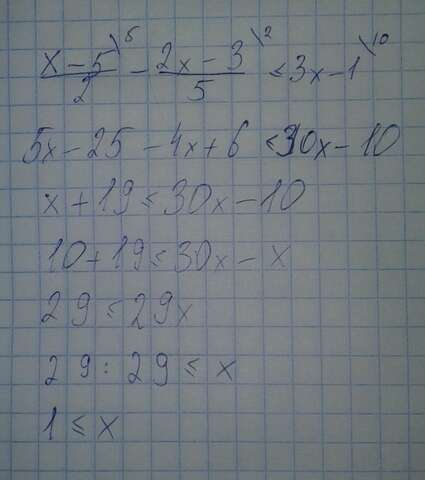 \frac{x-5}{2}^{\5} - \frac{2x-3}{5}^{\2} ≤ 3x-1^{\10}
5x-25-4x+6 ≤ 30x-10
x+19 ≤ 30x-10
10+19 ≤ 30x-x
29 ≤ 29x
29:29 ≤ x
1 ≤ x